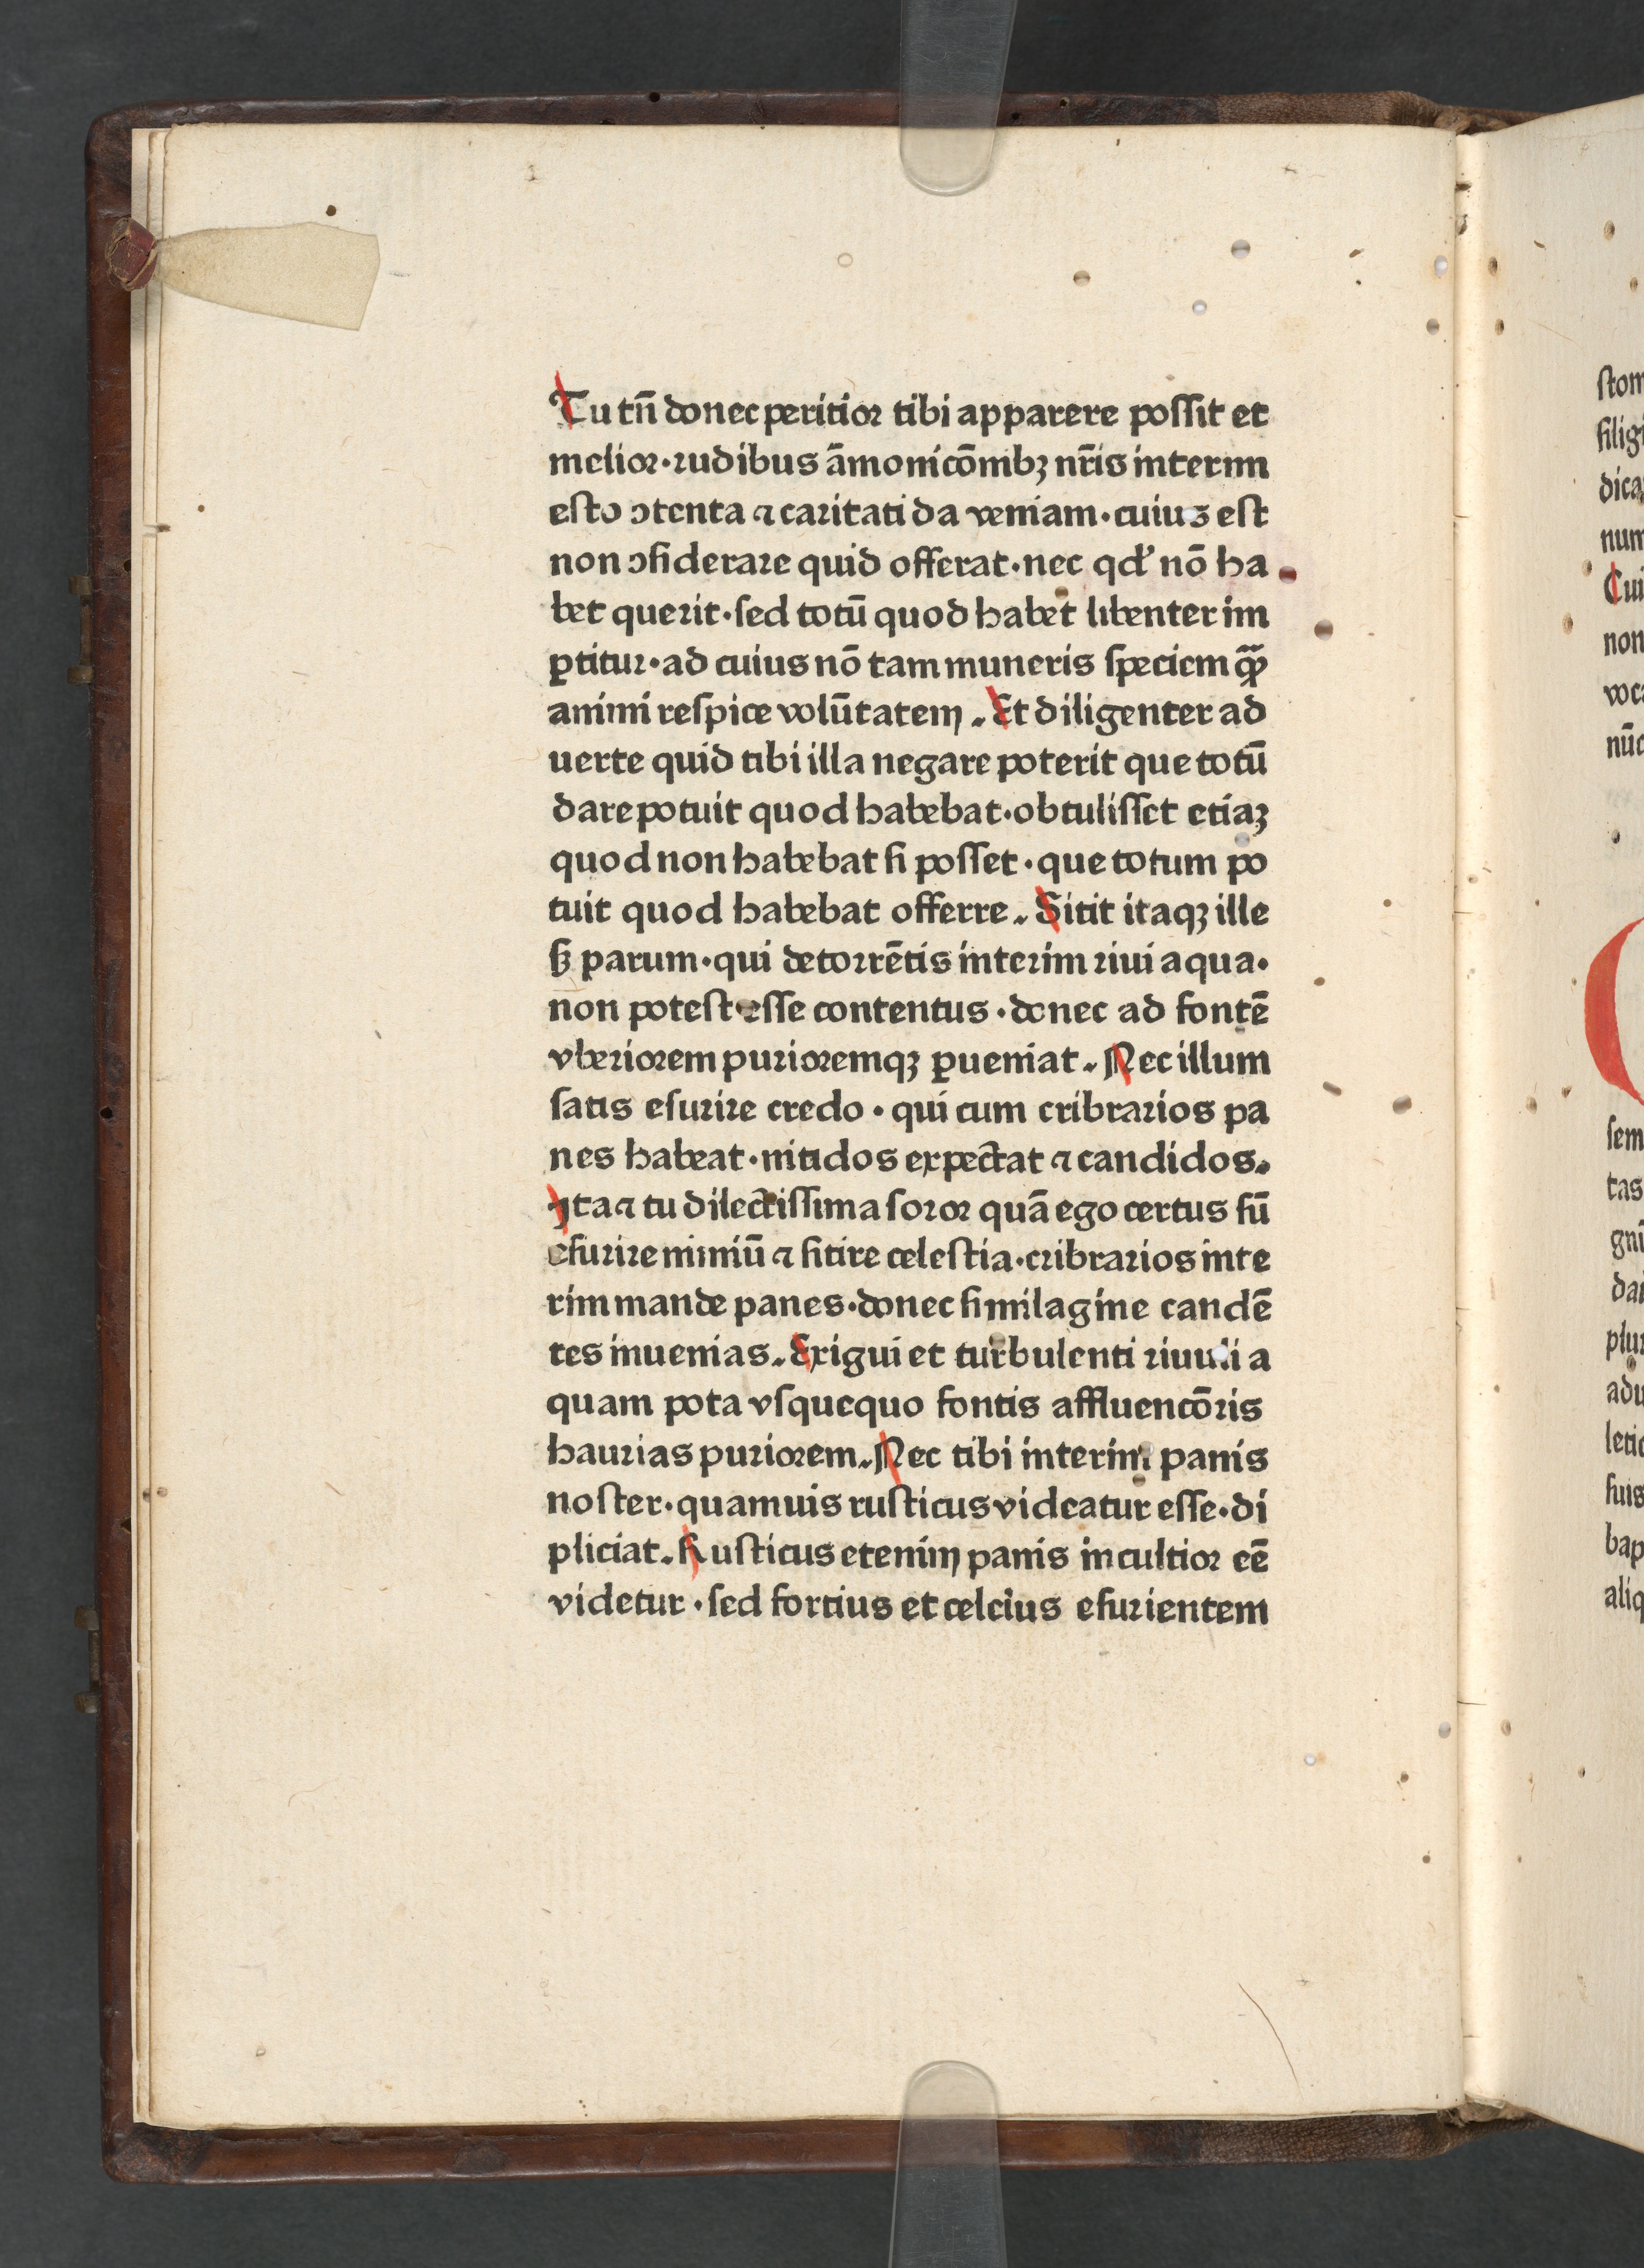 Tu tn̄ donec peritior tibi apparere possit et
melior·rudibus āmonicōmbꝫ nr̄is interim
esto ↄtenta ⁊ caritati da veniam·cuius est
non ↄsiderare quid offerat·nec qd' nō ha
bet querit·sed totū quod habet libenter im
ꝑtitur·ad cuius nō tam muneris speciem qͣꝫ
animi respice volūtatem. Et diligenter ad
uerte quid tibi illa negare poterit que totū
dare potuit quod habebat·obtulisset etiaꝫ
quod non habebat si posset·que totum po
tuit quod habebat offerre. Sitit itaqꝫ ille
sꝫ parum·qui de torrētis interim riui aqua·
non potest esse contentus·donec ad fontē
vberiorem purioremqꝫ ꝑueniat. Nec illum
satis esurire credo·qui cum cribrarios pa
nes habeat·nitidos expectat ⁊ candidos.
Ita ⁊ tu dilectissima soror quā ego certus sū
esurire nimiū ⁊ sitire celestia·cribrarios inte
rim mande panes·donec similagine candē
tes inuenias. Exigui et turbulenti riuuli a
quam pota vsquequo fontis affluencōris
haurias puriorem. Nec tibi interim panis
noster·quamuis rusticus videatur esse·di
pliciat. Rusticus etenim panis incultior eē
videtur·sed fortius et celcius esurientem
stom
filigi
dica
num
Cui
non
voca
nūc
sem
tas
gni
dar
plur
adu
letic
suis
bap
aliq